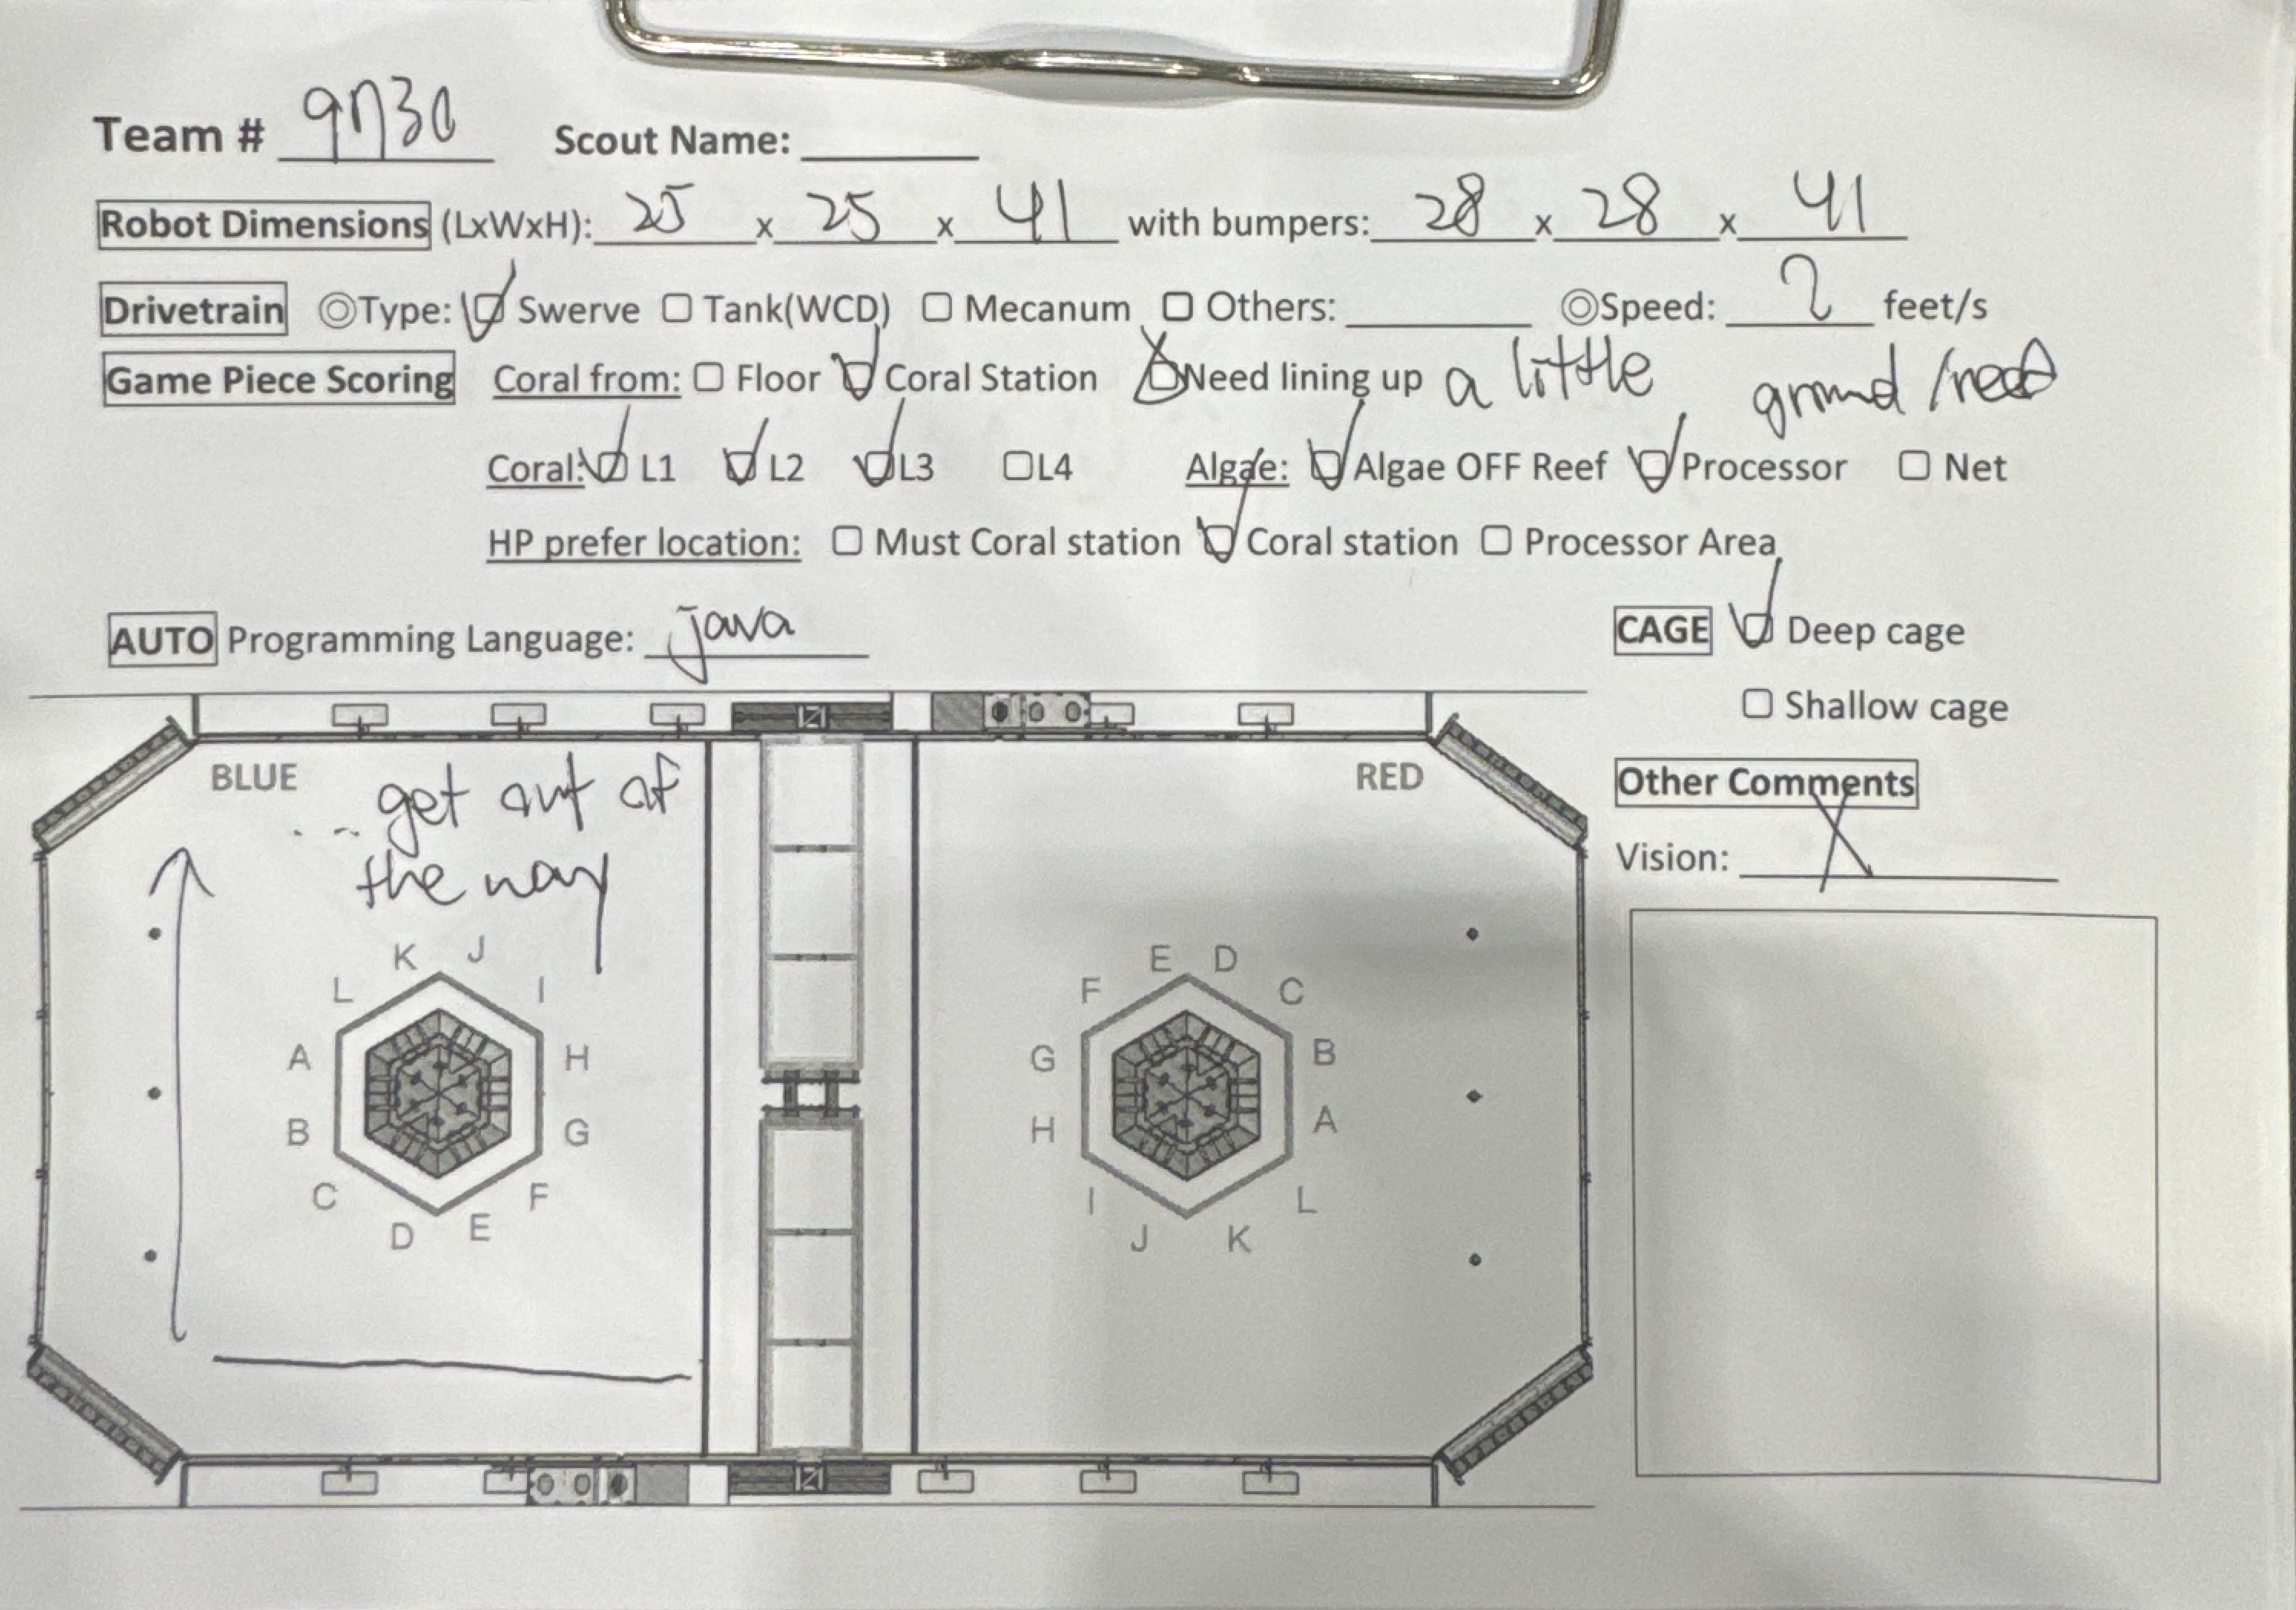 Team # 9730 Scout Name:
Robot Dimensions (LxWxH): 25 x 25 x 41 with bumpers: 28 x 28 x 41
Drivetrain ◎Type: ☑ Swerve ☐ Tank(WCD) ☐ Mecanum ☐ Others: ◎Speed: ? feet/s
Game Piece Scoring Coral from: ☐ Floor ☑ Coral Station ☒ Need lining up a little ground /
Coral: ☑ L1 ☑ L2 ☑ L3 ☐ L4 Algae: ☑ Algae OFF Reef ☑ Processor ☐ Net
HP prefer location: ☐ Must Coral station ☑ Coral station ☐ Processor Area
AUTO Programming Language: java
CAGE ☑ Deep cage
☐ Shallow cage
BLUE
get out of
the way
RED
Other Comments
Vision: X
K J
L I
A H
B G
C F
D E
E D
F C
G B
H A
I L
J K